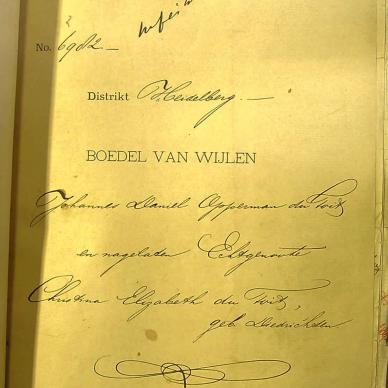 No. 6982
Distrikt Heidelberg
BOEDEL VAN WIJLEN
Johannes Daniel Opperman du Toit
en nagelaten Echtgenoote
Christina Elizabeth du Toit,
geb. Diedericksen